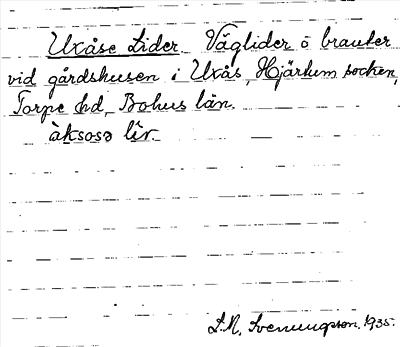 Uxåse Lider. Väglider o branter
vid gårdshusen i Uxås, Hjärtum socken,
Torpe hd, Bohus län.
àksosə lîr.
S.N. Svenungsson. 1935.